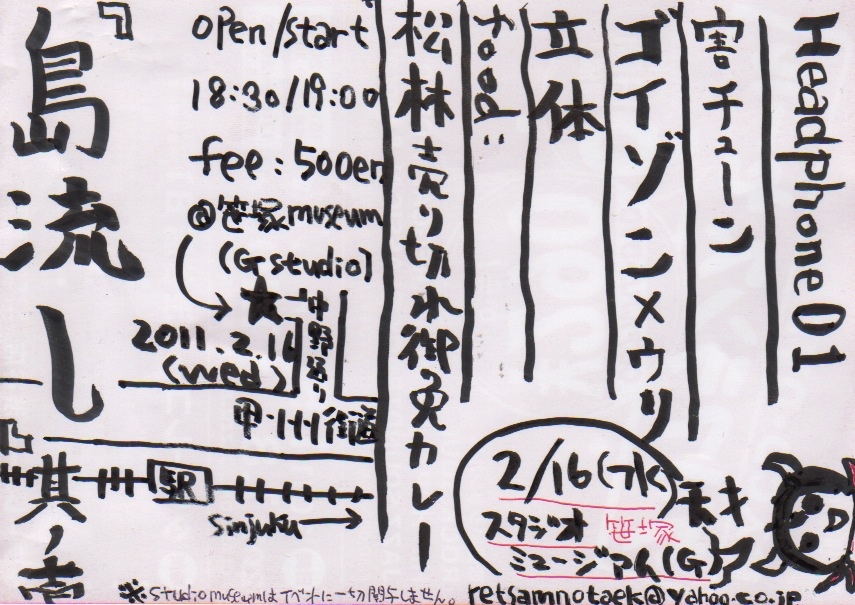 Headphone01
害チューン
ゴイゾンメウリ
立体
松林売り切れ御免カレー
open/start
18:30/19:00
fee:500en
@笹塚museum
(G studio)
中野通り
2011.2.16
(wed)
甲州街道
駅
sinjuku
『島流し
其ノ壱
2/16(水)
スタジオ 笹塚
ミュージアム(G)
※studio museumはイベントに一切関与しません。
retsamnotaek@yahoo.co.jp